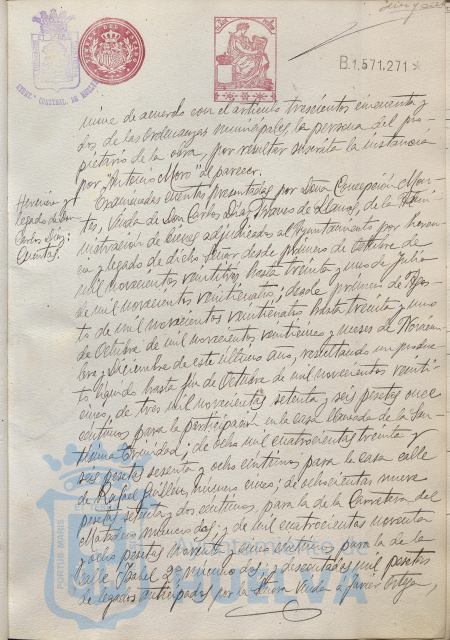 B.1.571.271
mine de acuerdo con el artículo trescientos cincuenta y
dos de las Ordenanzas municipales, la persona del pro-
pietario de la obra, por resultar suscrita la instancia
por "Antonio Moro" al parecer.
Herencia y
legado de Don
Carlos Díaz:
Cuentas.
Examinadas cuentas presentadas por Doña Concepción Mon-
tes, Viuda de Don Carlos Díaz Franco de Llanos, de la Admi-
nistración de bienes adjudicados al Ayuntamiento por heren-
cia y legado de dicho Señor desde primero de Octubre de
mil novecientos veintitrés hasta treinta y uno de Julio
de mil novecientos veinticuatro; desde primero de Agos-
to de mil novecientos veinticuatro hasta treinta y uno
de Octubre de mil novecientos veinticinco y meses de Noviem-
bre y Diciembre de este último año, resultando un produc-
to líquido hasta fin de Octubre de mil novecientos veinti-
cinco, de tres mil novecientas setenta y seis pesetas once
céntimos para la participación en la casa llamada de la San-
tísima Trinidad; de ocho mil cuatrocientas treinta y
seis pesetas sesenta y ocho céntimos para la casa calle
de Rafael Guillén, número cinco; de ochocientas nueve
pesetas setenta y dos céntimos, para la de la Carretera del
Matadero número dos; y de mil cuatrocientas noventa
y ocho pesetas noventa y un céntimos para la de la
calle Isabel 2ª número dos; y descontadas mil pesetas
de legados anticipados por la Señora Viuda a Javier Ortega,
PORTUS MARIS
Ayuntamiento de
HUELVA